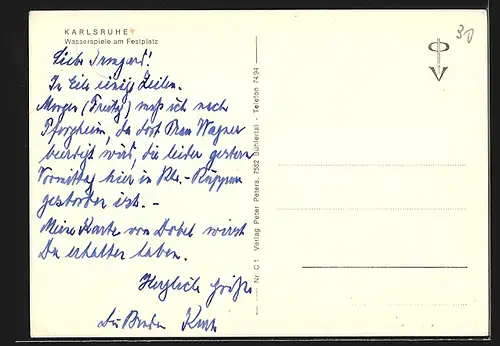 KARLSRUHE
Wasserspiele am Festplatz
30
Liebe Irmgard!
In Eile einige Zeilen.
Morgen (Freitg) muß ich nach
Pforzheim, da dort Frau Wagner
beerdigt wird, die leider gestern
Vormittag hier in Khe.-Rüppurr
gestorben ist. -
Meine Karte von Dobel wirst
Du erhalten haben.
Herzliche Grüße
Dein Bruder Kurt
Nr. C 1 Verlag Peter Peters, 7582 Bühlertal - Telefon 7494